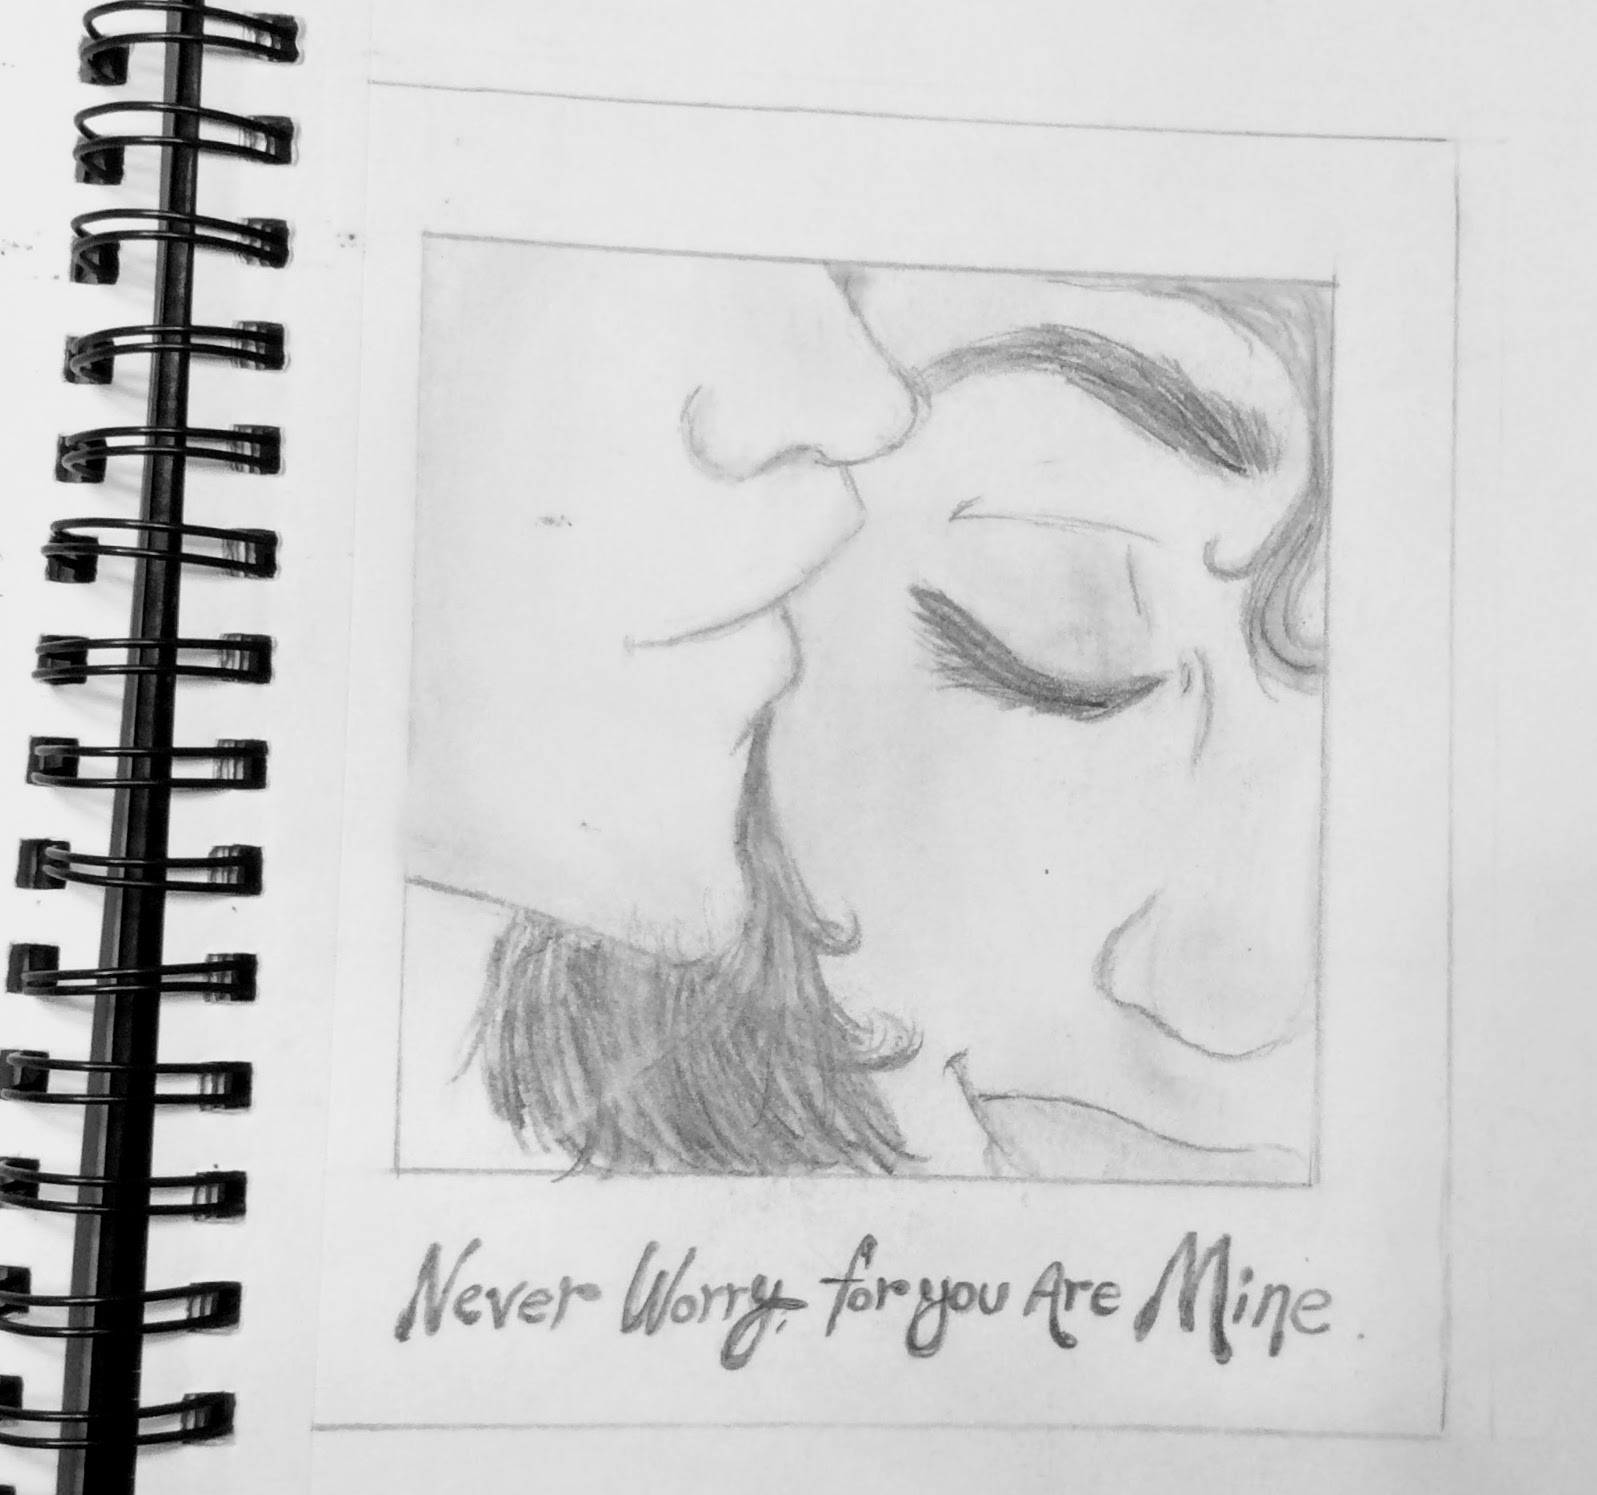 Never Worry, for you Are Mine.